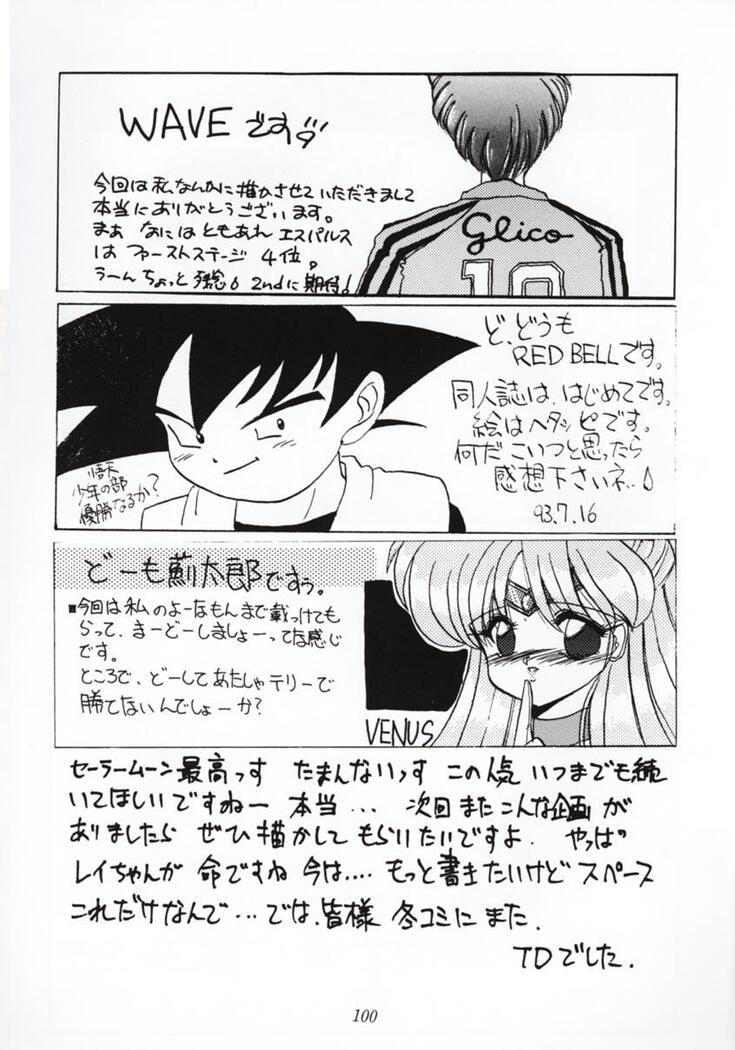 WAVEです
今回は私なんかに描かさせていただきまして
本当にありがとうございます。
まぁ なにはともあれ エスパルス
は ファーストステージ 4位。
うーん ちょっと 残念 2ndに期待!
Glico
10
ど、どうも
RED BELLです。
同人誌は、はじめてです。
絵はヘタッピです。
何だこいつと思ったら
感想下さいネ…
93.7.16
悟天
少年の部
優勝なるか?
どーも薊太郎ですぅ。
■今回は私のよーなもんまで載っけても
らって、まーどーしましょーってな感じ
です。
ところで、どーしてあたしゃテリーで
勝てないんでしょーか?
VENUS
セーラームーン 最高っす たまんないっす この人気 いつまでも続
いてほしいですねー 本当... 次回 また こんな企画 が
ありましたら ぜひ 描かして もらいたいですよ. やっぱ
レイちゃんが 命ですね 今は.... もっと書きたいけど スペース
これだけなんで... では、皆様 冬コミに また.
TDでした.
100